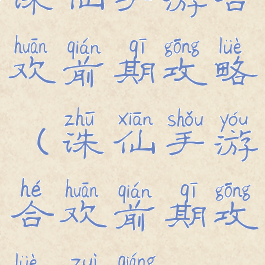 诛仙手游合
huān qián qī gōng lüè
欢前期攻略
zhū xiān shǒu yóu
(诛仙手游
hé huān qián qī gōng
合欢前期攻
lüè zuì qiáng